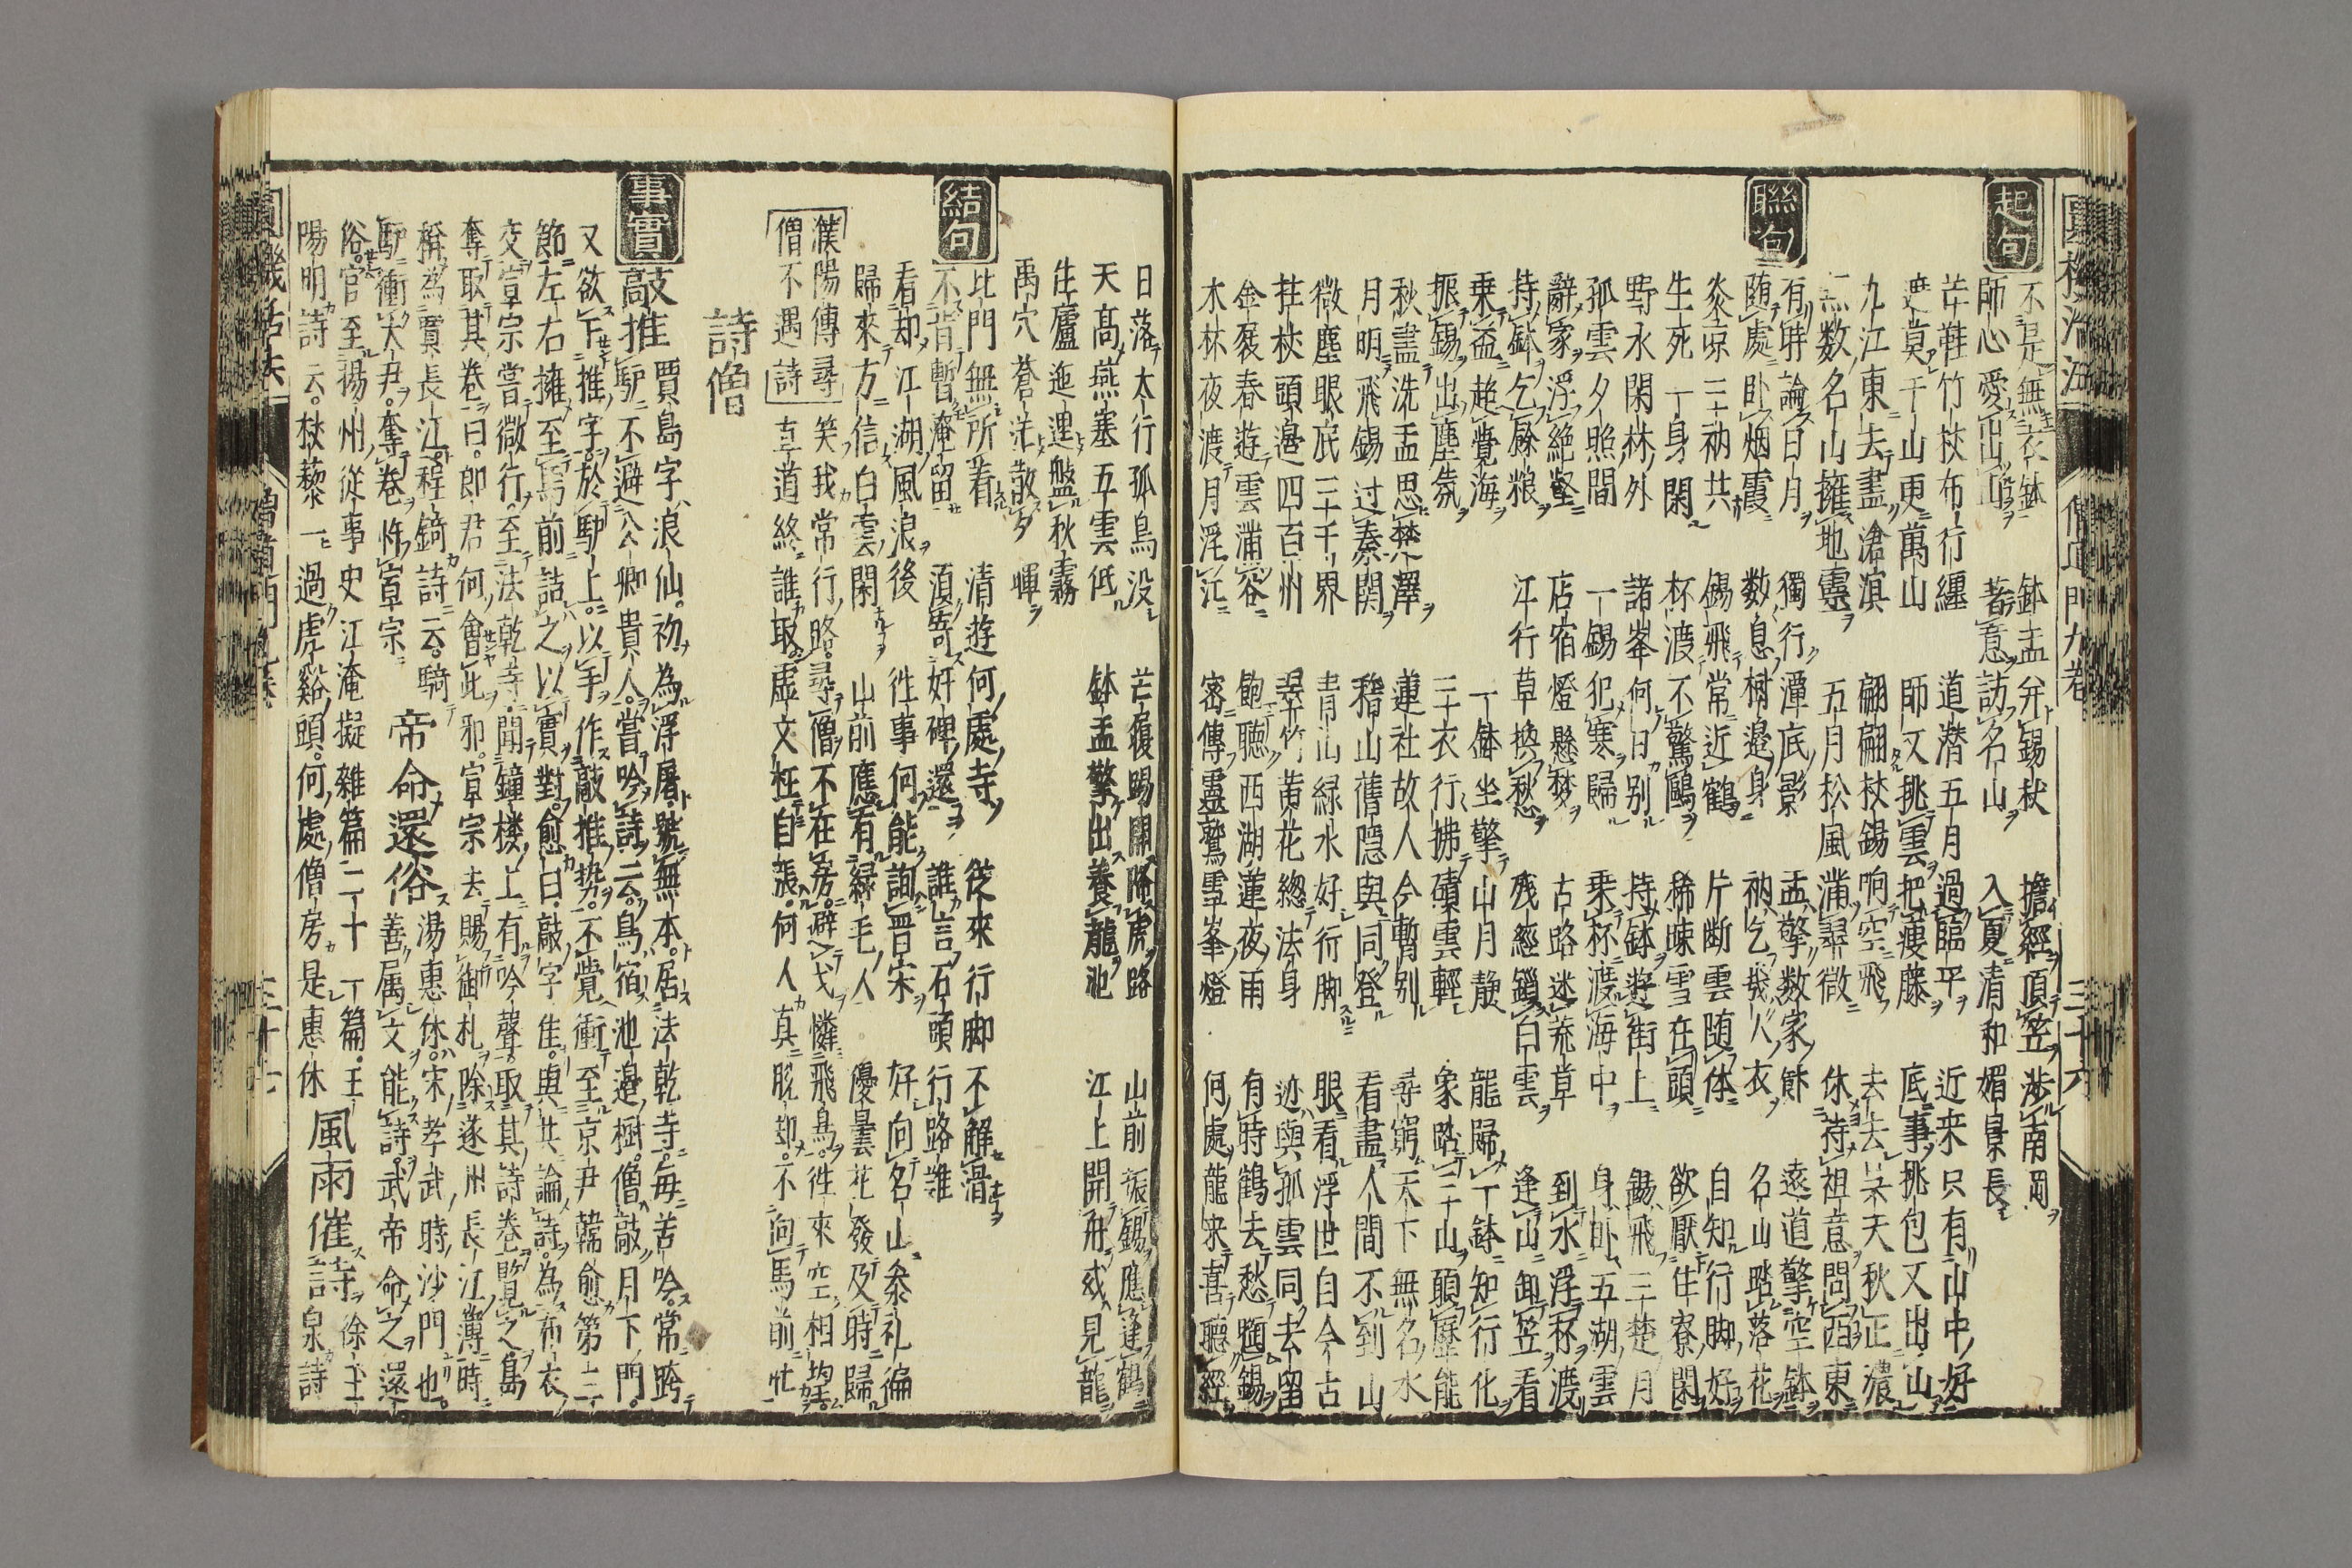 圓機活法 僧道門九卷 三十六
不是無衣鉢 鉢盂并錫杖 擔經頂笠 渉南岡
起句
師心愛出山 著意訪名山 入夏清和媚景長
芒鞋竹杖布行纏 道潜五月過臨平 近来只有山中好
遮莫千山更萬山 師又挑雲把瘦藤 底事挑包又出山
九江東去盡滄溟 翩翩杖錫响空飛 去去天秋正濃
無数名山擁地靈 五月松風滿翠微 休待祖意問西東
聯句
有時論日月 獨行潭底影 盂擎数家餘 遠道擎空鉢
随處卧烟霞 数息樹邉身 衲乞幾人衣 名山踏落花
炎凉三衲共 錫飛常近鶴 片断雲随体 自知行脚好
生死一身閑 杯渡不驚鷗 稀踈雪在頭 欲厭住寮閑
野水閑林外 諸峯何日别 持鉢遊街上 錫飛三楚月
孤雲夕照間 一錫犯寒歸 乗杯渡海中 身卧五湖雲
辭家浮絶壑 店宿燈懸梦 古路迷荒草 到水浮杯渡
持鉢乞餘粮 江行草換秋 残經鎖白雲 逢山卸笠看
乗益超覺海 一鉢坐擎山月静 龍歸一鉢知行化
振錫出塵氛 三衣行拂磧雲輕 象踏三山願歴能
秋盡洗盂思楚澤 蓮社故人今暫别 尋窮天下無名水
月明飛錫过秦関 稽山舊隠與同登 看盡人間不到山
微塵眼底三千界 青山緑水好行脚 眼看浮世自今古
拄杖頭邉四百州 翠竹黄花總法身 迹與孤雲同去留
金飡春遊雲滿谷 飽聴西湖蓮夜雨 有時鶴去愁題錫
木林夜渡月浮江 密傳靈鷲雪峯燈 何處龍来喜聴經
日落太行孤鳥没 芒履踢開降虎路 山前振錫應逢鶴
天髙燕塞五雲低 鉢盂擎出養龍池 江上開舟或見龍
生廬迤逦盤秋霧
禹穴蒼茫散夕暉
結句
比門無所着 清遊何處寺 從來行脚不解滑
不肯暫淹留 須寄奸碑還 誰言石頭行路難
看却江湖風浪後 徃事何能詢晋宋 好向名山叅礼徧
歸來方信白雲閑 山前應有緑毛人 優曇花發及時歸
濮陽傳尋 笑我常行路 尋僧不在房 避弋憐飛鳥 徃來空相堪
僧不遇詩 直道終誰取 虚文枉自張 何人真脱却 不向馬前忙
詩僧
事實
敲推 賈島字浪仙。初為浮屠。號無本。居法乾寺。毎苦吟。常跨
驴不避公卿貴人。嘗吟詩云。鳥宿池邉樹。僧敲月下門。
又欲下推字。於驴上。以手作敲推势。不覺衝至京尹韓愈第三
節。左右擁至馬前。詰之以實對。愈曰。敲字佳。與共論詩。為布衣
交。宣宗嘗微行。至法乾寺。聞鐘楼上有吟聲。取其詩卷覽之。島
奪取其卷曰。郎君何會此邪。宣宗去。賜御札。除遂州長江簿。時
稱為賈長江。程錡詩云。騎 帝命還俗 湯惠休。宋孝武時沙門也。
驴衝大尹。奪卷忤宣宗 善属文。能詩。武帝命之還
俗。官至揚州從事史 江淹擬雜篇二十一篇。王 徐王
陽明詩云。杖藜一過虎谿頭。何處僧房是惠休 風雨催詩 詩云泉詩
圓機活法 僧道門九卷 三十七